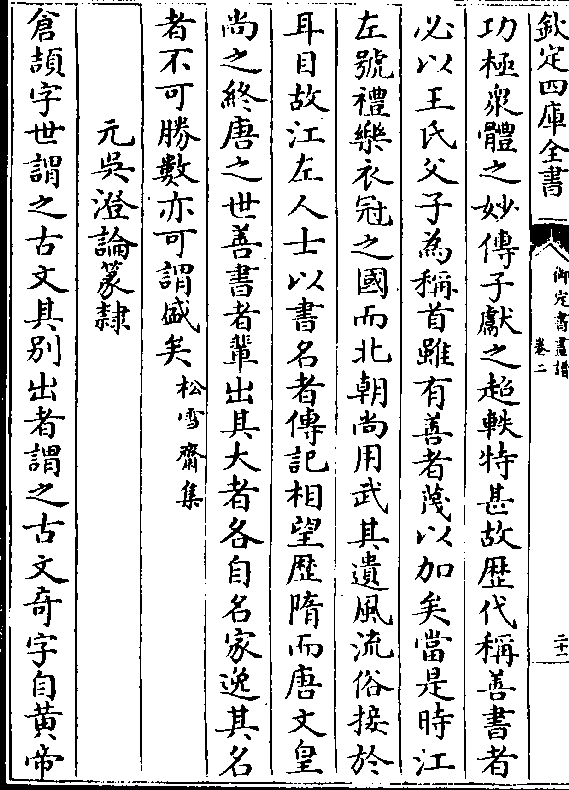 欽定四庫全書
御定書畫譜
卷二
二十一
功極衆體之妙傳子獻之超軼特甚故歴代稱善書者
必以王氏父子為稱首雖有善者蔑以加矣當是時江
左號禮樂衣冠之國而北朝尚用武其遺風流俗接於
耳目故江左人士以書名者傳記相望歴隋而唐文皇
尚之終唐之世善書者輩出其大者各自名家逸其名
者不可勝數亦可謂盛矣松雪齋集
元吳澄論篆隷
倉頡字世謂之古文其别出者謂之古文奇字自黄帝